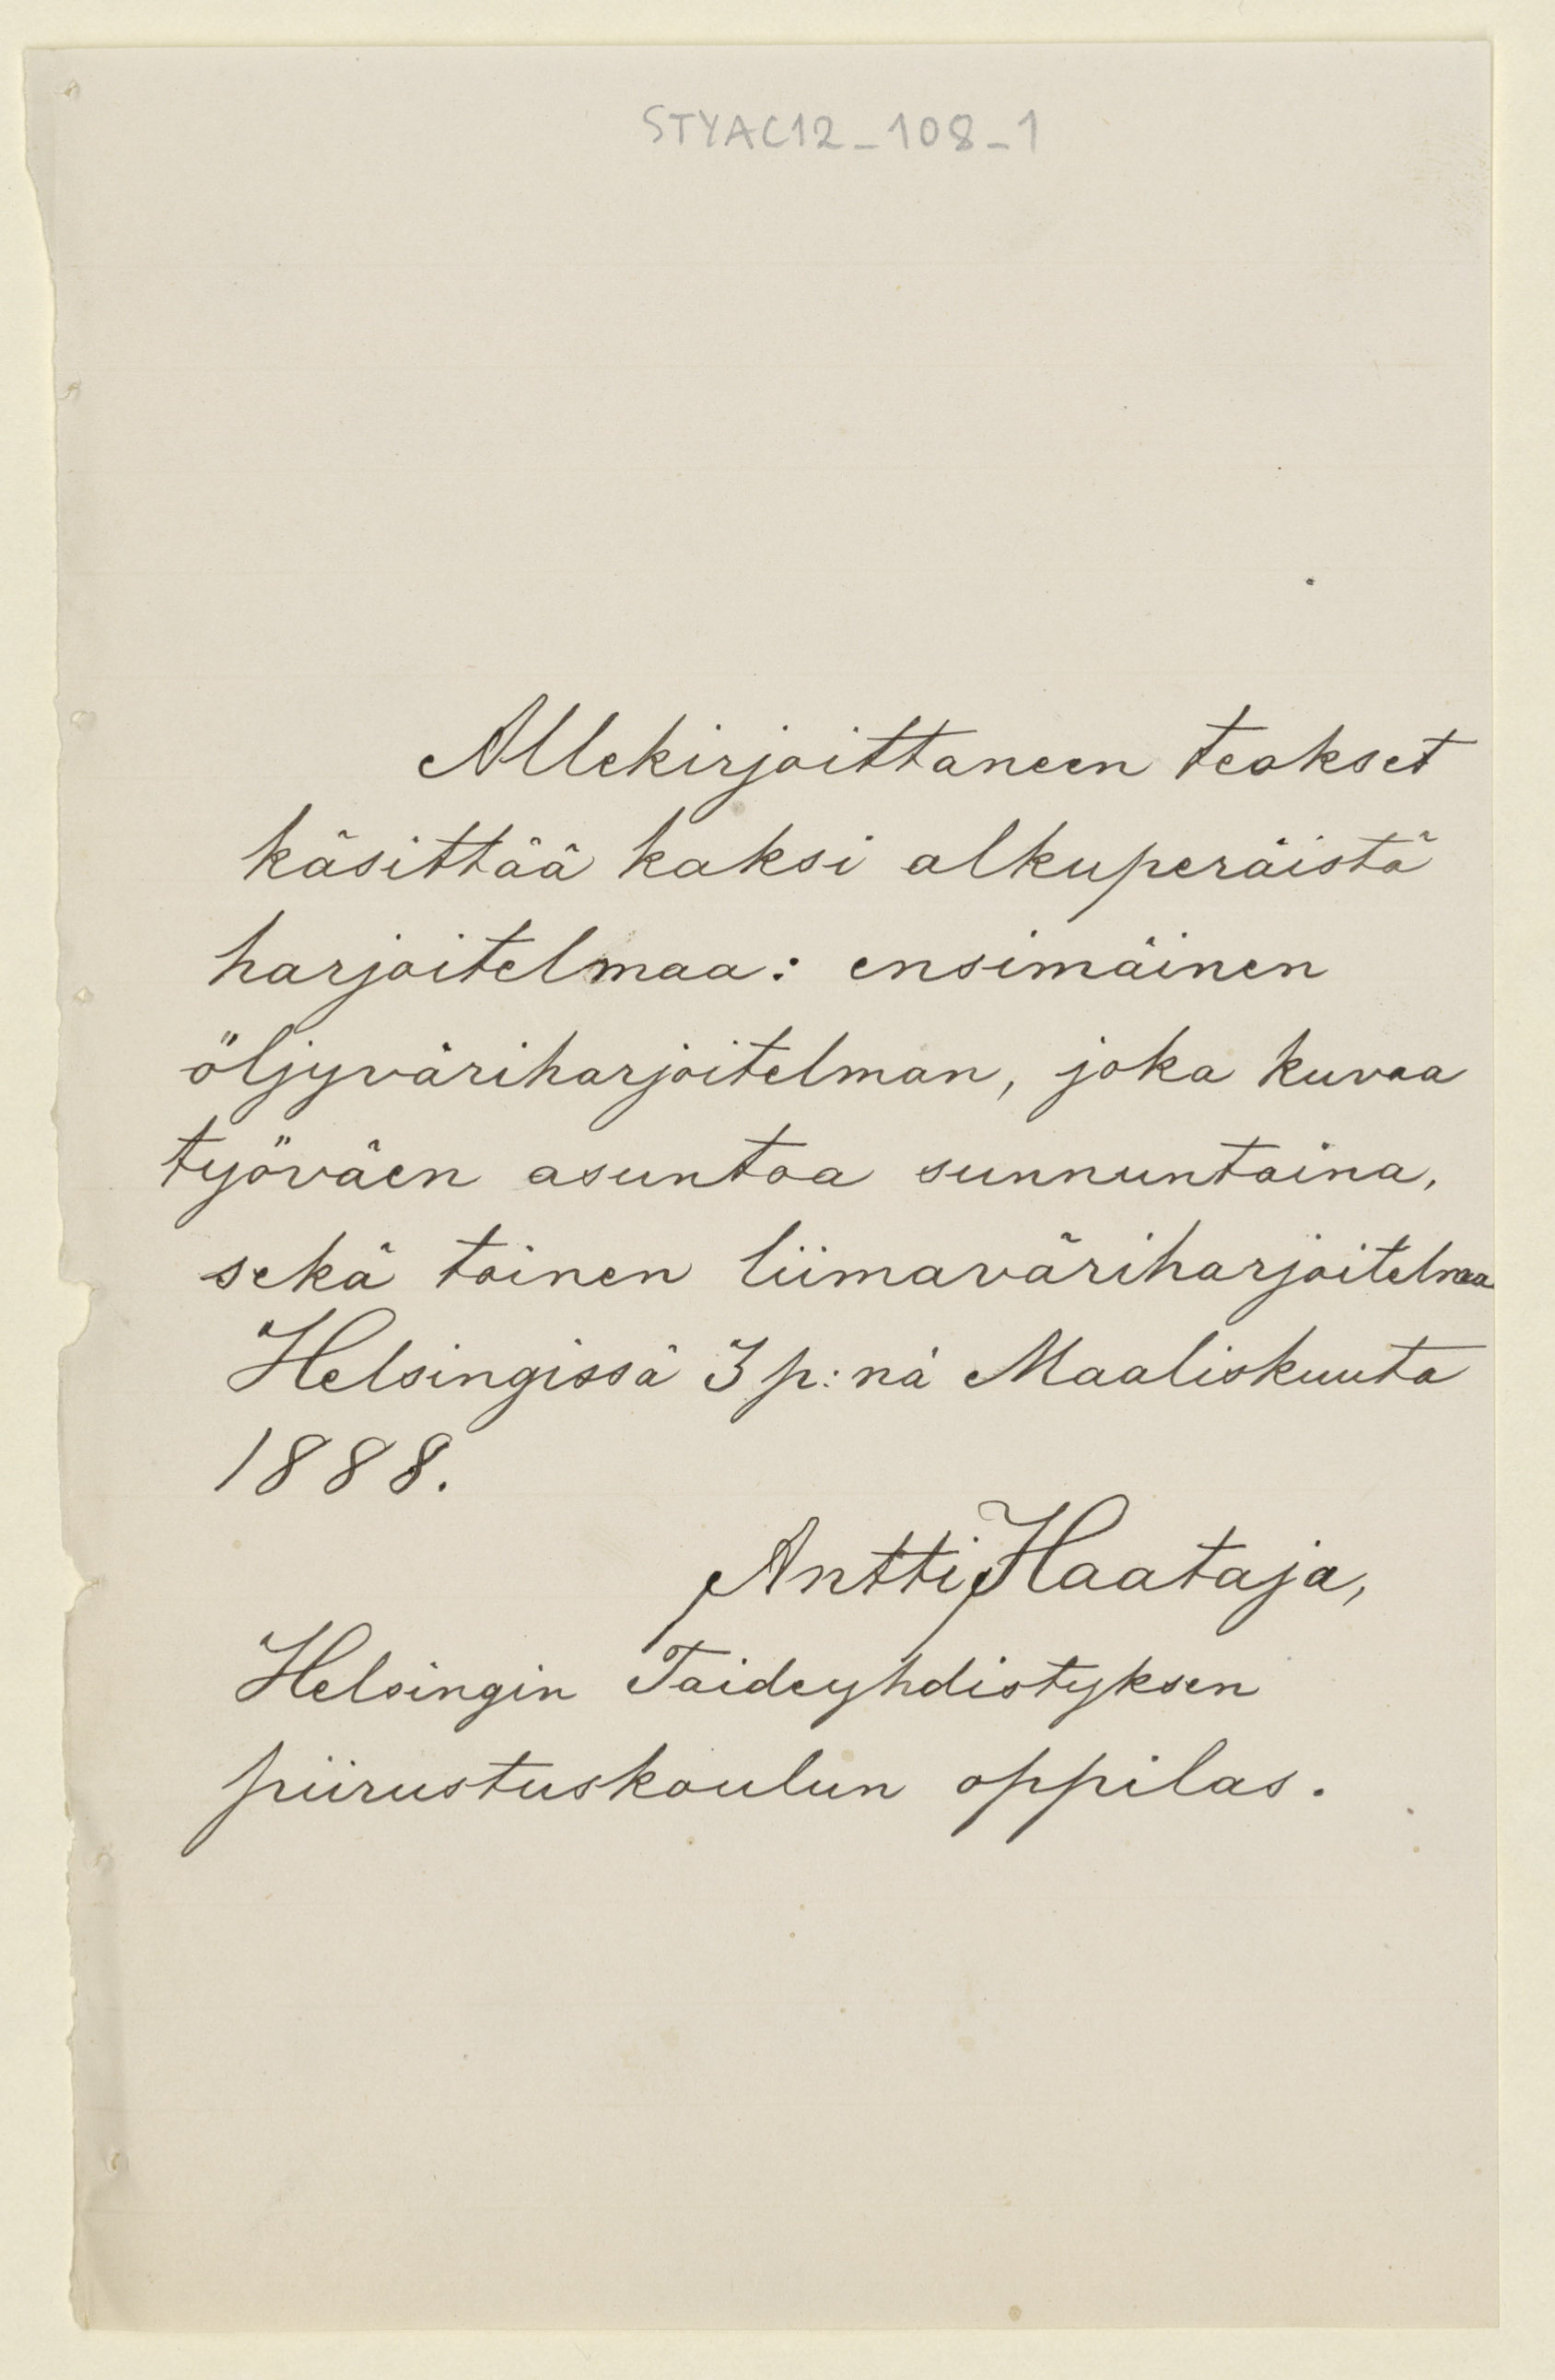 STYAC12_108_1
Allekirjoittaneen teokset
käsittää kaksi alkuperäistä
harjoitelmaa: ensimäinen
öljyväriharjoitelman, joka kuvaa
työväen asuntoa sunnuntaina,
sekä toinen liimaväriharjoitelmaa
Helsingissä 3 p:nä Maaliskuuta
1888.
Antti Haataja,
Helsingin Taideyhdistyksen
piirustuskoulun oppilas.